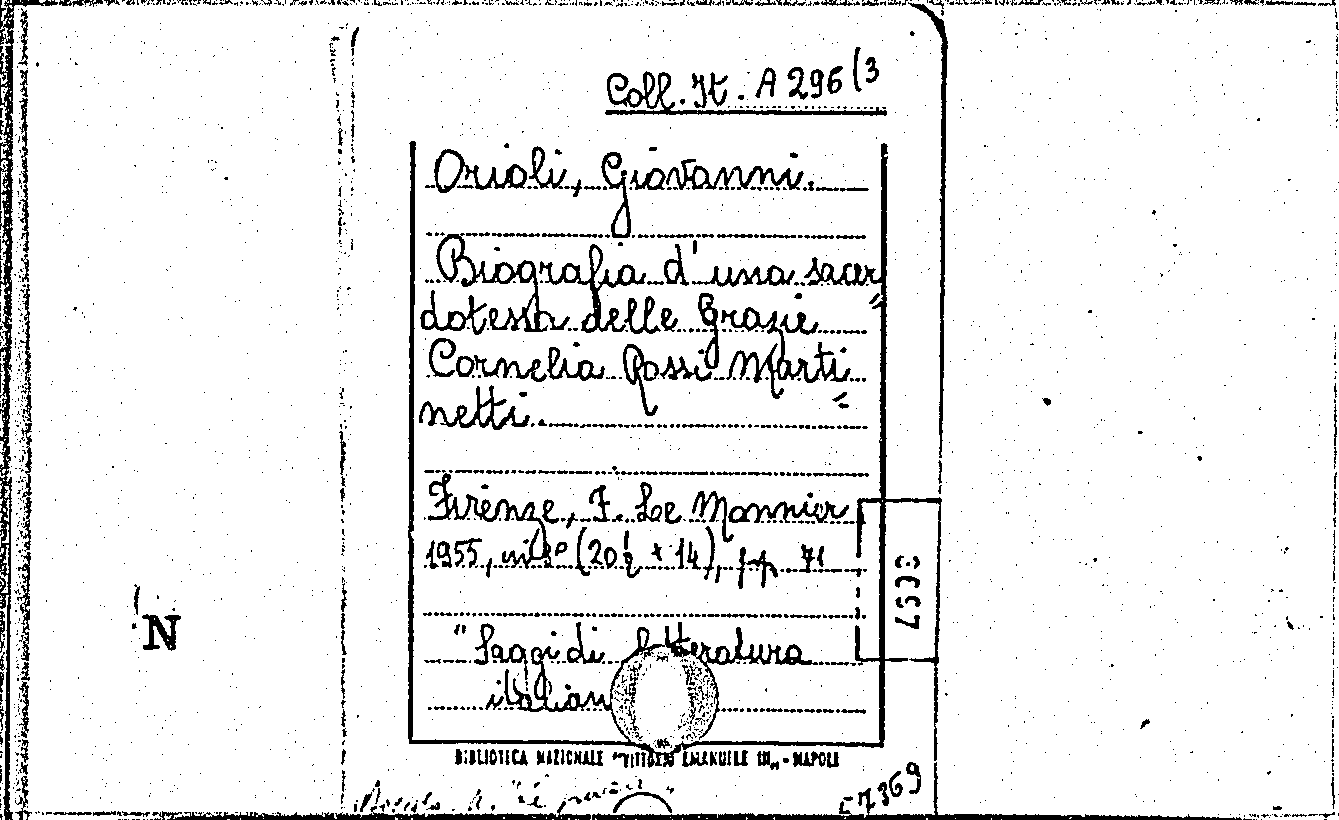 Coll. It. A 296 (3
Orioli, Giovanni.
Biografia d'una sacer
dotessa delle Grazie
Cornelia Rossi Marti
netti.
Firenze, F. Le Monnier
1955, in 8º (20½ × 14), pp. 71
"Saggi di letteratura
italian
N
BIBLIOTECA NAZIONALE "VITTORIO EMANUELE III„ - NAPOLI